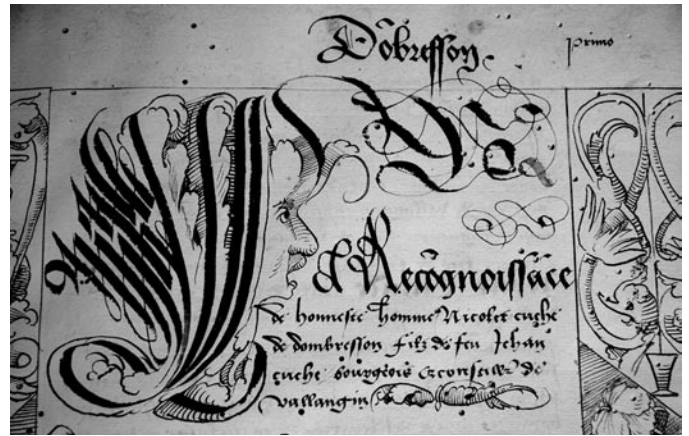 Dōbresson
primo
& Recōgnoissāce
de honneste homme Nicolet cuche
de dombresson filz de feu Jehan
cuche bourgeois & conseiller de
vallangin